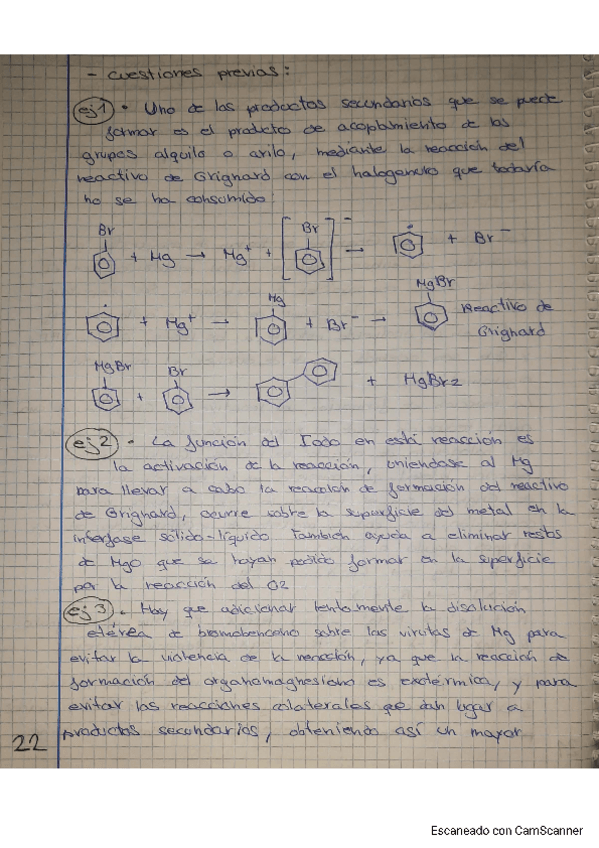 - cuestiones previas:
ej1 • Uno de los productos secundarios que se puede
formar es el producto de acoplamiento de los
grupos alquilo o arilo, mediante la reacción del
reactivo de Grignard con el halogenuro que todavía
no se ha consumido
Br + Mg → Mg⁺ + [Br]⁻ → • + Br⁻
• + Mg⁺ → Mg + Br⁻ → MgBr Reactivo de
Grignard
MgBr + Br → + MgBr2
ej2 • La función del Iodo en está reacción es
la activación de la reacción, uniendose al Mg
para llevar a cabo la reacción de formación del reactivo
de Grignard, ocurre sobre la superficie del metal en la
interfase sólido-líquido también ayuda a eliminar restos
de MgO que se hayan podido formar en la superficie
por la reacción del O2
ej3 • Hay que adicionar lentamente la disolución
etérea de bromobenceno sobre las virutas de Mg para
evitar la violencia de la reacción, ya que la reacción de
formación del organomagnesiano es exotérmica, y para
evitar las reacciones colaterales que dan lugar a
productos secundarios, obteniendo así un mayor
22
Escaneado con CamScanner